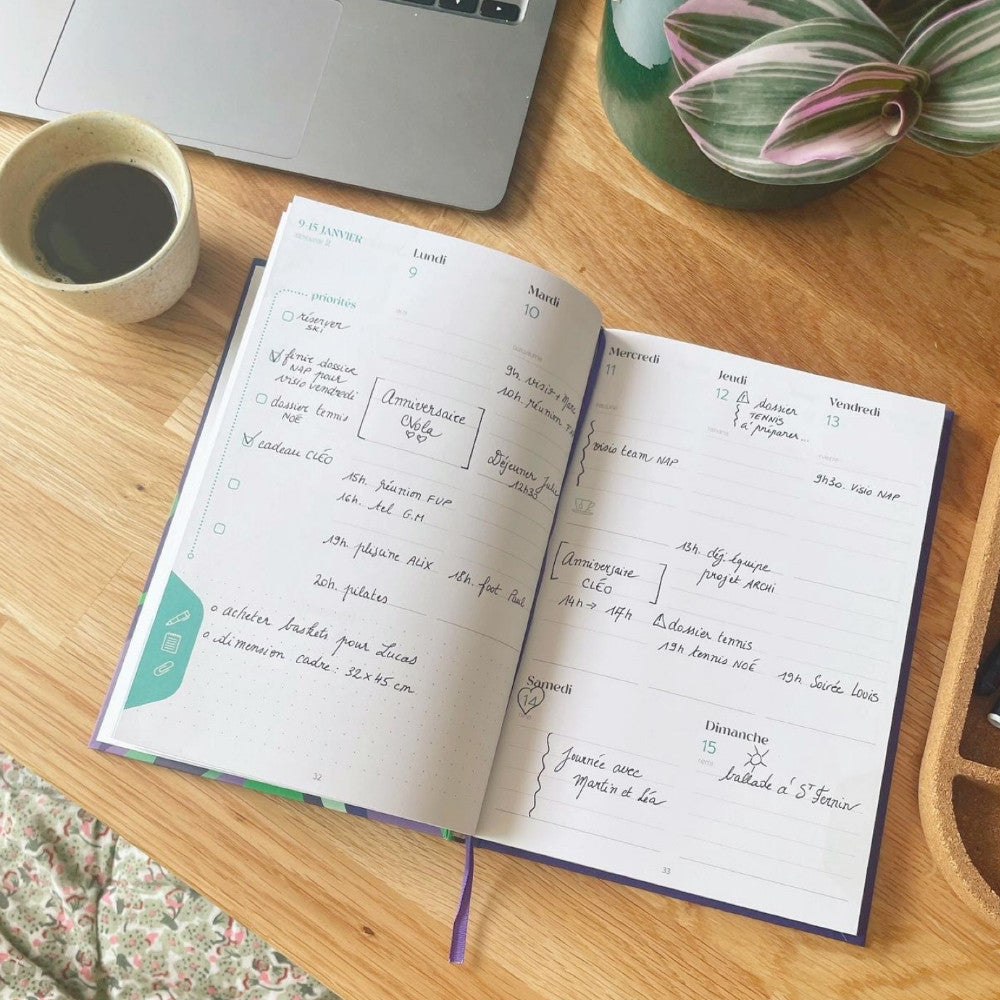 9-15 JANVIER
semaine 2
priorités
réserver
SKI
finir dossier
NAP pour
visio vendredi
dossier tennis
NOÉ
cadeau CLÉO
Lundi
9
Anniversaire
Nola
15h. réunion FUP
16h. tel G.M
19h. piscine ALIX
20h. pilates
Mardi
10
9h. visio + Marc
10h. réunion
Déjeuner Julie
12h35
18h. foot Paul
o acheter baskets pour Lucas
o dimension cadre : 32 x 45 cm
32
Mercredi
11
visio team NAP
Anniversaire
CLÉO
14h → 17h
Jeudi
12
dossier
TENNIS
à préparer...
13h. déj. équipe
projet ARCHI
dossier tennis
19h tennis NOÉ
Vendredi
13
9h30. Visio NAP
19h. Soirée Louis
Samedi
14
Journée avec
Martin et Léa
Dimanche
15
ballade à St Fernin
33